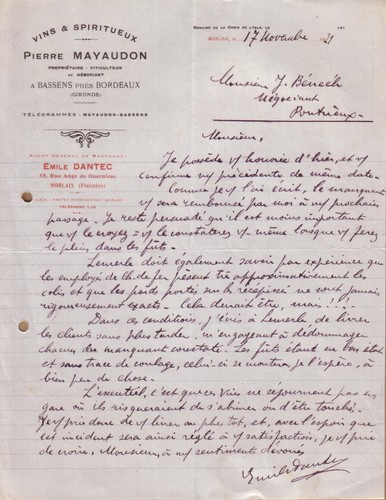 VINS & SPIRITUEUX
PIERRE MAYAUDON
PROPRIÉTAIRE - VITICULTEUR
ET NÉGOCIANT
A BASSENS PRÈS BORDEAUX
(GIRONDE)
TÉLÉGRAMMES: MAYAUDON-BASSENS
AGENT GÉNÉRAL
ÉMILE DANTEC
MORLAIX (Finistère)
MORLAIX, le 17 Novembre 1921
Monsieur J. Bénech
Négociant
Pontrieux
Monsieur,
Je possède v/ honorée d'hier, et v/
confirme v/ précédente de même date.
Comme je v/ l'ai écrit, le manquant
v/ sera remboursé par moi à v/ prochain
passage. Je reste persuadé qu'il est moins important
que v/ le croyez = v/ le constaterez v/ même lorsque v/ ferez
le plein dans les fûts.
Lemerle doit également savoir par expérience que
les employés de ch. de fer pèsent très approximativement les
colis et que les poids portés sur le récépissé ne sont jamais
rigoureusement exacts. Cela devrait être, mais !!!
Dans ces conditions j'écris à Lemerle de livrer
les clients sans plus tarder, m'engageant à dédommager
chacun du manquant constaté. Les fûts étant en bon état
et sans trace de coulage, celui-ci se montera, je l'espère, à
bien peu de chose.
L'essentiel, c'est que ces vins ne séjournent pas en
gare où ils risqueraient de s'abimer ou d'être touchés.
Je v/ prie donc de v/ livrer au plus tôt, et, avec l'espoir que
cet incident sera ainsi réglé à v/ satisfaction, je v/ prie
de croire, Monsieur, à m/ sentiments dévoués
Emile Dantec